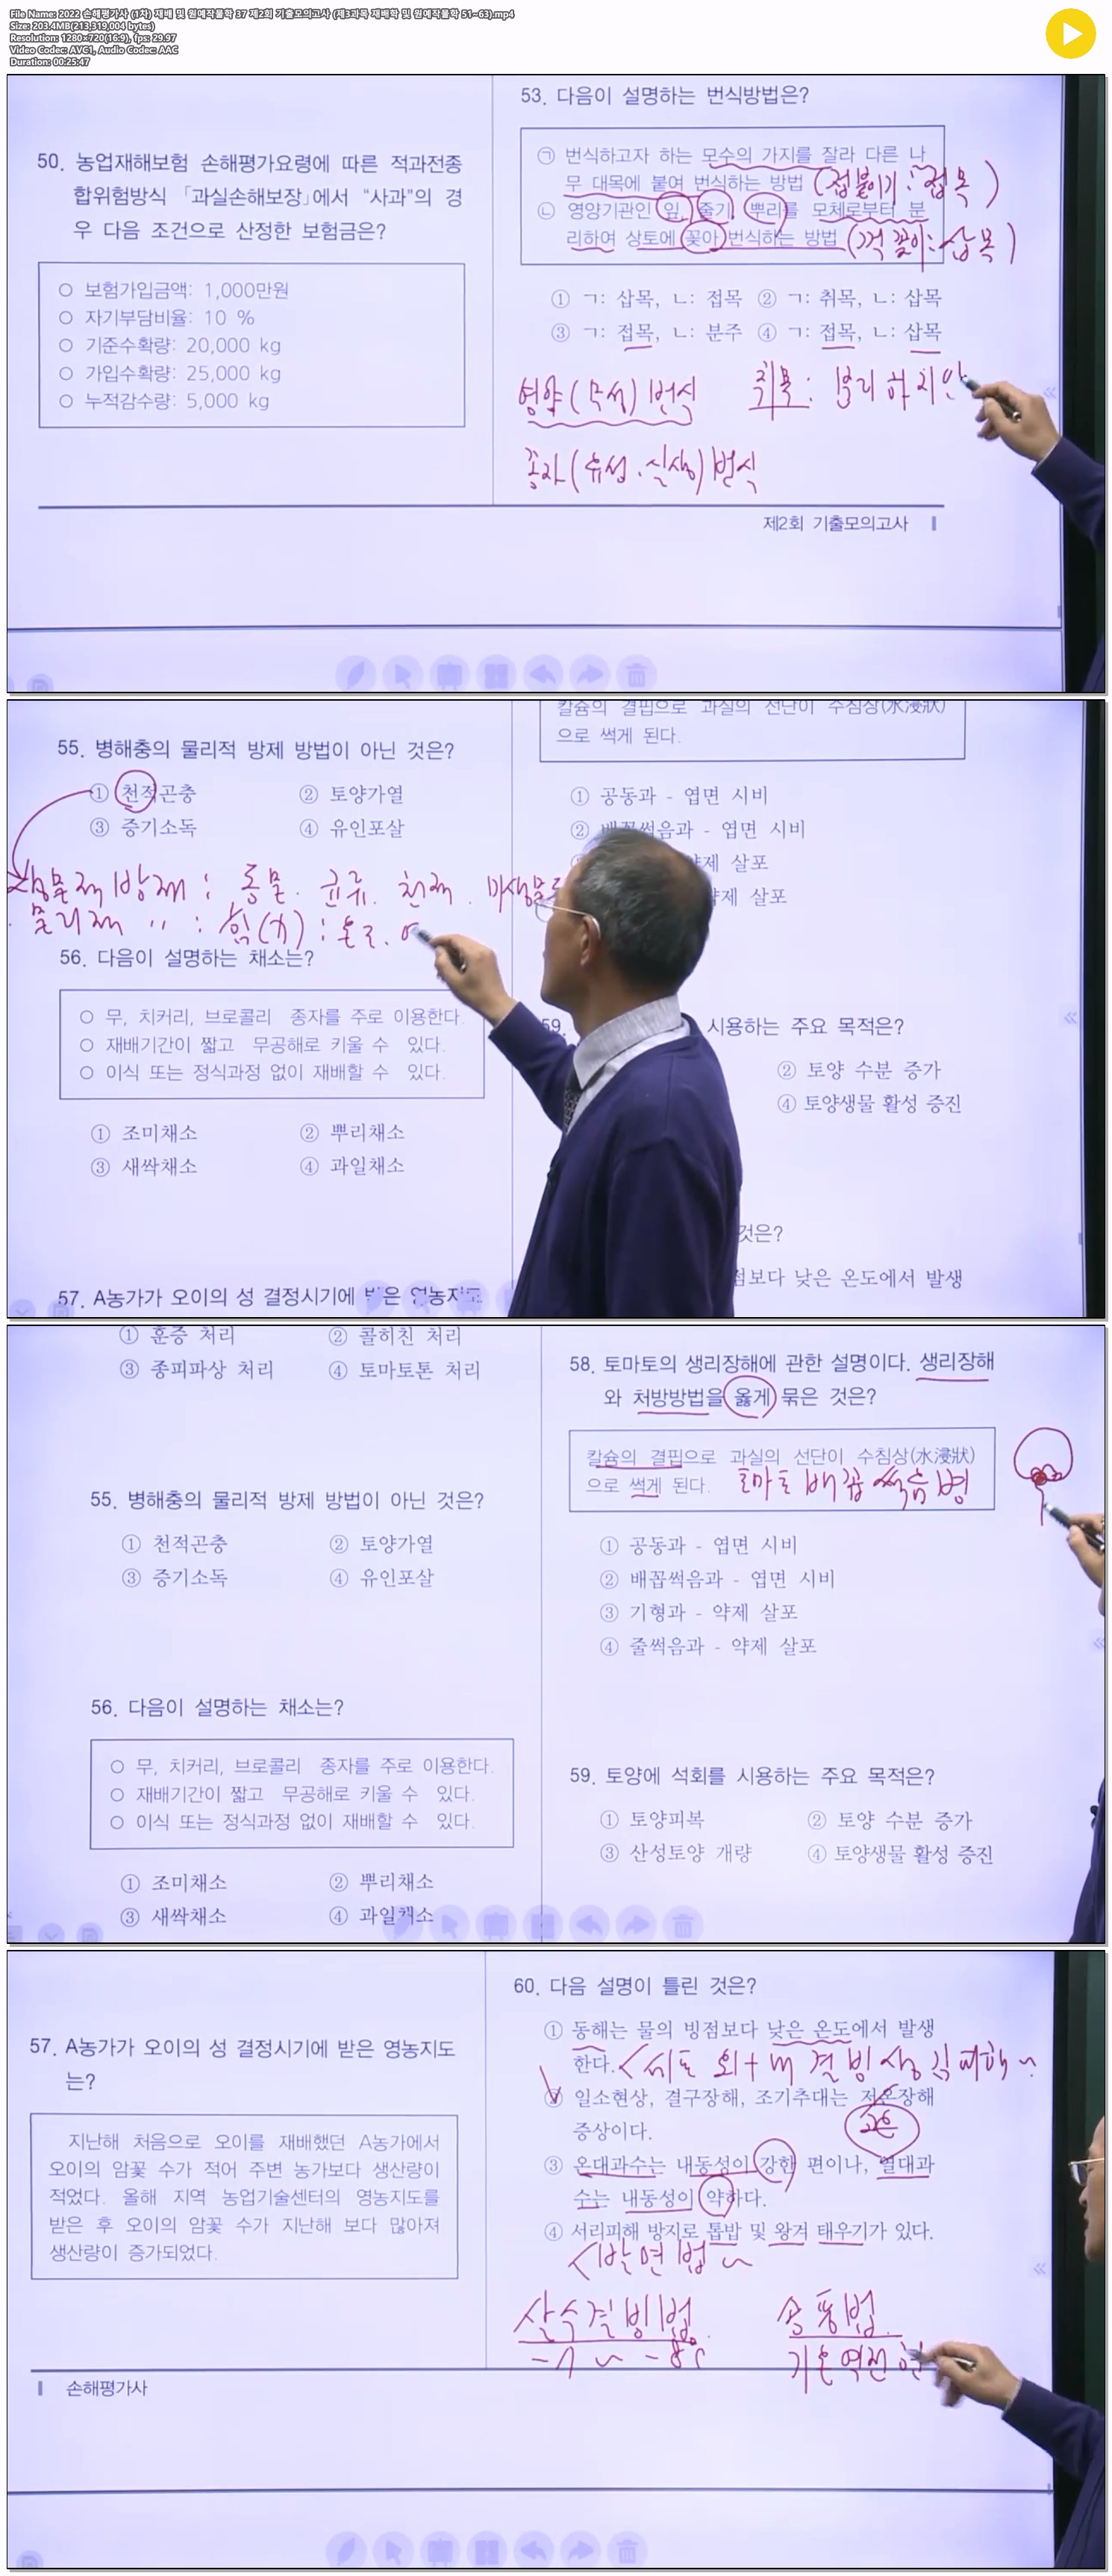 File Name: 2022 손해평가사 (1차) 재배 및 원예작물학 37 제2회 기출모의고사 (제3과목 재배학 및 원예작물학 51~63).mp4
Size: 203.4MB(213,319,004 bytes)
Resolution: 1280×720(16:9), fps: 29.97
Video Codec: AVC1, Audio Codec: AAC
Duration: 00:25:47
50. 농업재해보험 손해평가요령에 따른 적과전종
합위험방식 「과실손해보장」에서 "사과"의 경
우 다음 조건으로 산정한 보험금은?
○ 보험가입금액: 1,000만원
○ 자기부담비율: 10 %
○ 기준수확량: 20,000 kg
○ 가입수확량: 25,000 kg
○ 누적감수량: 5,000 kg
53. 다음이 설명하는 번식방법은?
㉠ 번식하고자 하는 모수의 가지를 잘라 다른 나
무 대목에 붙여 번식하는 방법 (접붙이기: 접목)
㉡ 영양기관인 잎, 줄기, 뿌리를 모체로부터 분
리하여 상토에 꽂아 번식하는 방법 (꺾꽂이: 삽목)
① ㄱ: 삽목, ㄴ: 접목 ② ㄱ: 취목, ㄴ: 삽목
③ ㄱ: 접목, ㄴ: 분주 ④ ㄱ: 접목, ㄴ: 삽목
영양(무성)번식 취목: 분리하지안
종자(유성.실생)번식
제2회 기출모의고사
55. 병해충의 물리적 방제 방법이 아닌 것은?
① 천적곤충 ② 토양가열
③ 증기소독 ④ 유인포살
생물재방재: 동물. 균류. 천재. 미생물
물리재 〃 : 힘(力): 온도.
56. 다음이 설명하는 채소는?
○ 무, 치커리, 브로콜리 종자를 주로 이용한다.
○ 재배기간이 짧고 무공해로 키울 수 있다.
○ 이식 또는 정식과정 없이 재배할 수 있다.
① 조미채소 ② 뿌리채소
③ 새싹채소 ④ 과일채소
57. A농가가 오이의 성 결정시기에 받은 영농지도
칼슘의 결핍으로 과실의 선단이 수침상(水浸狀)
으로 썩게 된다.
① 공동과 - 엽면 시비
② 배꼽썩음과 - 엽면 시비
약제 살포
약제 살포
59. 시용하는 주요 목적은?
② 토양 수분 증가
④ 토양생물 활성 증진
것은?
점보다 낮은 온도에서 발생
① 훈증 처리 ② 콜히친 처리
③ 종피파상 처리 ④ 토마토톤 처리
55. 병해충의 물리적 방제 방법이 아닌 것은?
① 천적곤충 ② 토양가열
③ 증기소독 ④ 유인포살
56. 다음이 설명하는 채소는?
○ 무, 치커리, 브로콜리 종자를 주로 이용한다.
○ 재배기간이 짧고 무공해로 키울 수 있다.
○ 이식 또는 정식과정 없이 재배할 수 있다.
① 조미채소 ② 뿌리채소
③ 새싹채소 ④ 과일채소
58. 토마토의 생리장해에 관한 설명이다. 생리장해
와 처방방법을 옳게 묶은 것은?
칼슘의 결핍으로 과실의 선단이 수침상(水浸狀)
으로 썩게 된다. 토마토 배꼽썩음병
① 공동과 - 엽면 시비
② 배꼽썩음과 - 엽면 시비
③ 기형과 - 약제 살포
④ 줄썩음과 - 약제 살포
59. 토양에 석회를 시용하는 주요 목적은?
① 토양피복 ② 토양 수분 증가
③ 산성토양 개량 ④ 토양생물 활성 증진
57. A농가가 오이의 성 결정시기에 받은 영농지도
는?
지난해 처음으로 오이를 재배했던 A농가에서
오이의 암꽃 수가 적어 주변 농가보다 생산량이
적었다. 올해 지역 농업기술센터의 영농지도를
받은 후 오이의 암꽃 수가 지난해 보다 많아져
생산량이 증가되었다.
손해평가사
60. 다음 설명이 틀린 것은?
① 동해는 물의 빙점보다 낮은 온도에서 발생
한다.
② 일소현상, 결구장해, 조기추대는 저온장해
증상이다. 고온
③ 온대과수는 내동성이 강한 편이나, 열대과
수는 내동성이 약하다.
④ 서리피해 방지로 톱밥 및 왕겨 태우기가 있다.
발연법
산수결빙법 송풍법
기온역전